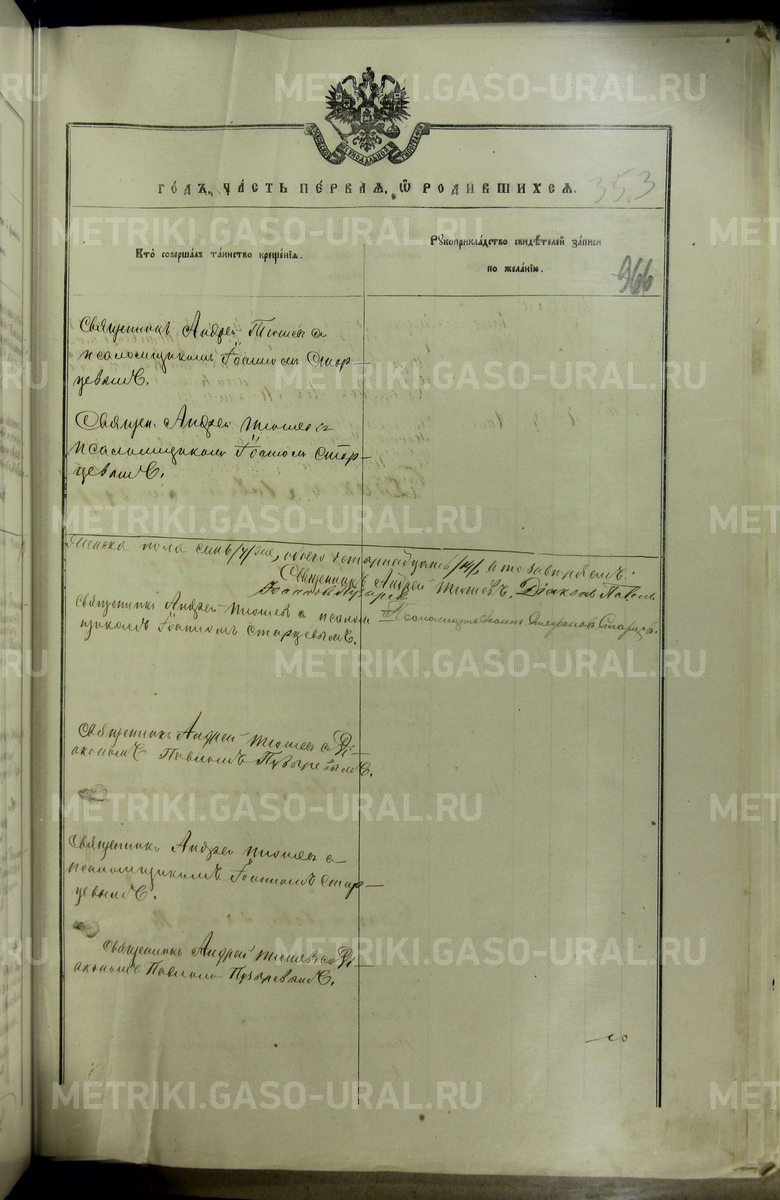 METRIKI.GASO-URAL.RU
го́дъ, ча́сть пе́рваѧ, ѡ҆ роди́вшихсѧ.
353
Кто̀ соверша́лъ та́инство креще́нїѧ.
Рꙋкоприкла́дство свидѣ́телей за́писи
по жела́нїю.
966
Священникъ Андрей Тюшев с
псаломщикомъ Іоанномъ Стар-
цевымъ.
Священ. Андрей Тюшев с
псаломщикомъ Іоанномъ Стар-
цевымъ.
Женска пола семь /7/, обоего четырнадцать /14/, в то заверяемъ:
Священникъ Андрей Тюшевъ. Діаконъ Павелъ
Іоанновъ Пузырев
Псаломщикъ Іоаннъ Стефановъ Старцев.
Священникъ Андрей Тюшев с псалом
щикомъ Іоанномъ Старцевымъ.
Священникъ Андрей Тюшев с Ді-
акономъ Павломъ Пузыревымъ.
Священникъ Андрей Тюшев с
псаломщикомъ Іоанномъ Стар-
цевымъ.
Священникъ Андрей Тюшев с Ді-
акономъ Павломъ Пузыревымъ.